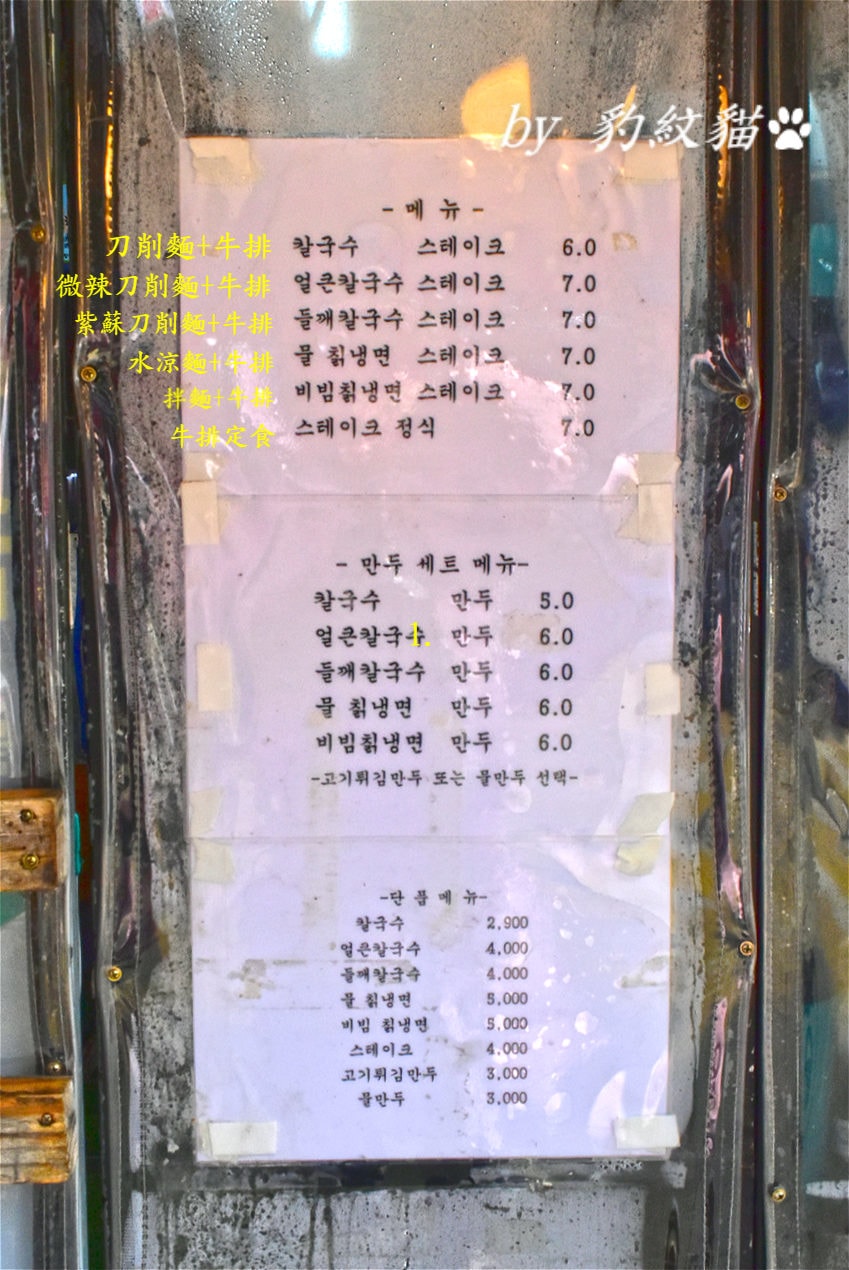 by 豹紋貓
- 메 뉴 -
刀削麵+牛排 칼국수 스테이크 6.0
微辣刀削麵+牛排 얼큰칼국수 스테이크 7.0
紫蘇刀削麵+牛排 들깨칼국수 스테이크 7.0
水涼麵+牛排 물 칡냉면 스테이크 7.0
拌麵+牛排 비빔칡냉면 스테이크 7.0
牛排定食 스테이크 정식 7.0
- 만두 세트 메뉴-
칼국수 만두 5.0
얼큰칼국수 만두 6.0
1.
들깨칼국수 만두 6.0
물 칡냉면 만두 6.0
비빔칡냉면 만두 6.0
-고기튀김만두 또는 물만두 선택-
-단 품 메 뉴-
칼국수 2,900
얼큰칼국수 4,000
들깨칼국수 4,000
물 칡냉면 5,000
비빔 칡냉면 5,000
스테이크 4,000
고기튀김만두 3,000
물만두 3,000